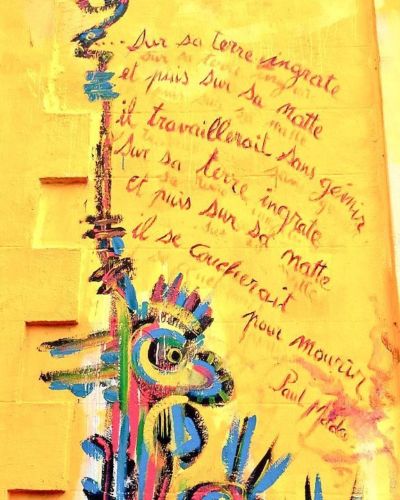 .... Sur sa terre ingrate
et puis sur sa natte
il travaillerait sans gémir
Sur sa terre ingrate
et puis sur sa natte
il se coucherait
pour mourir
Paul